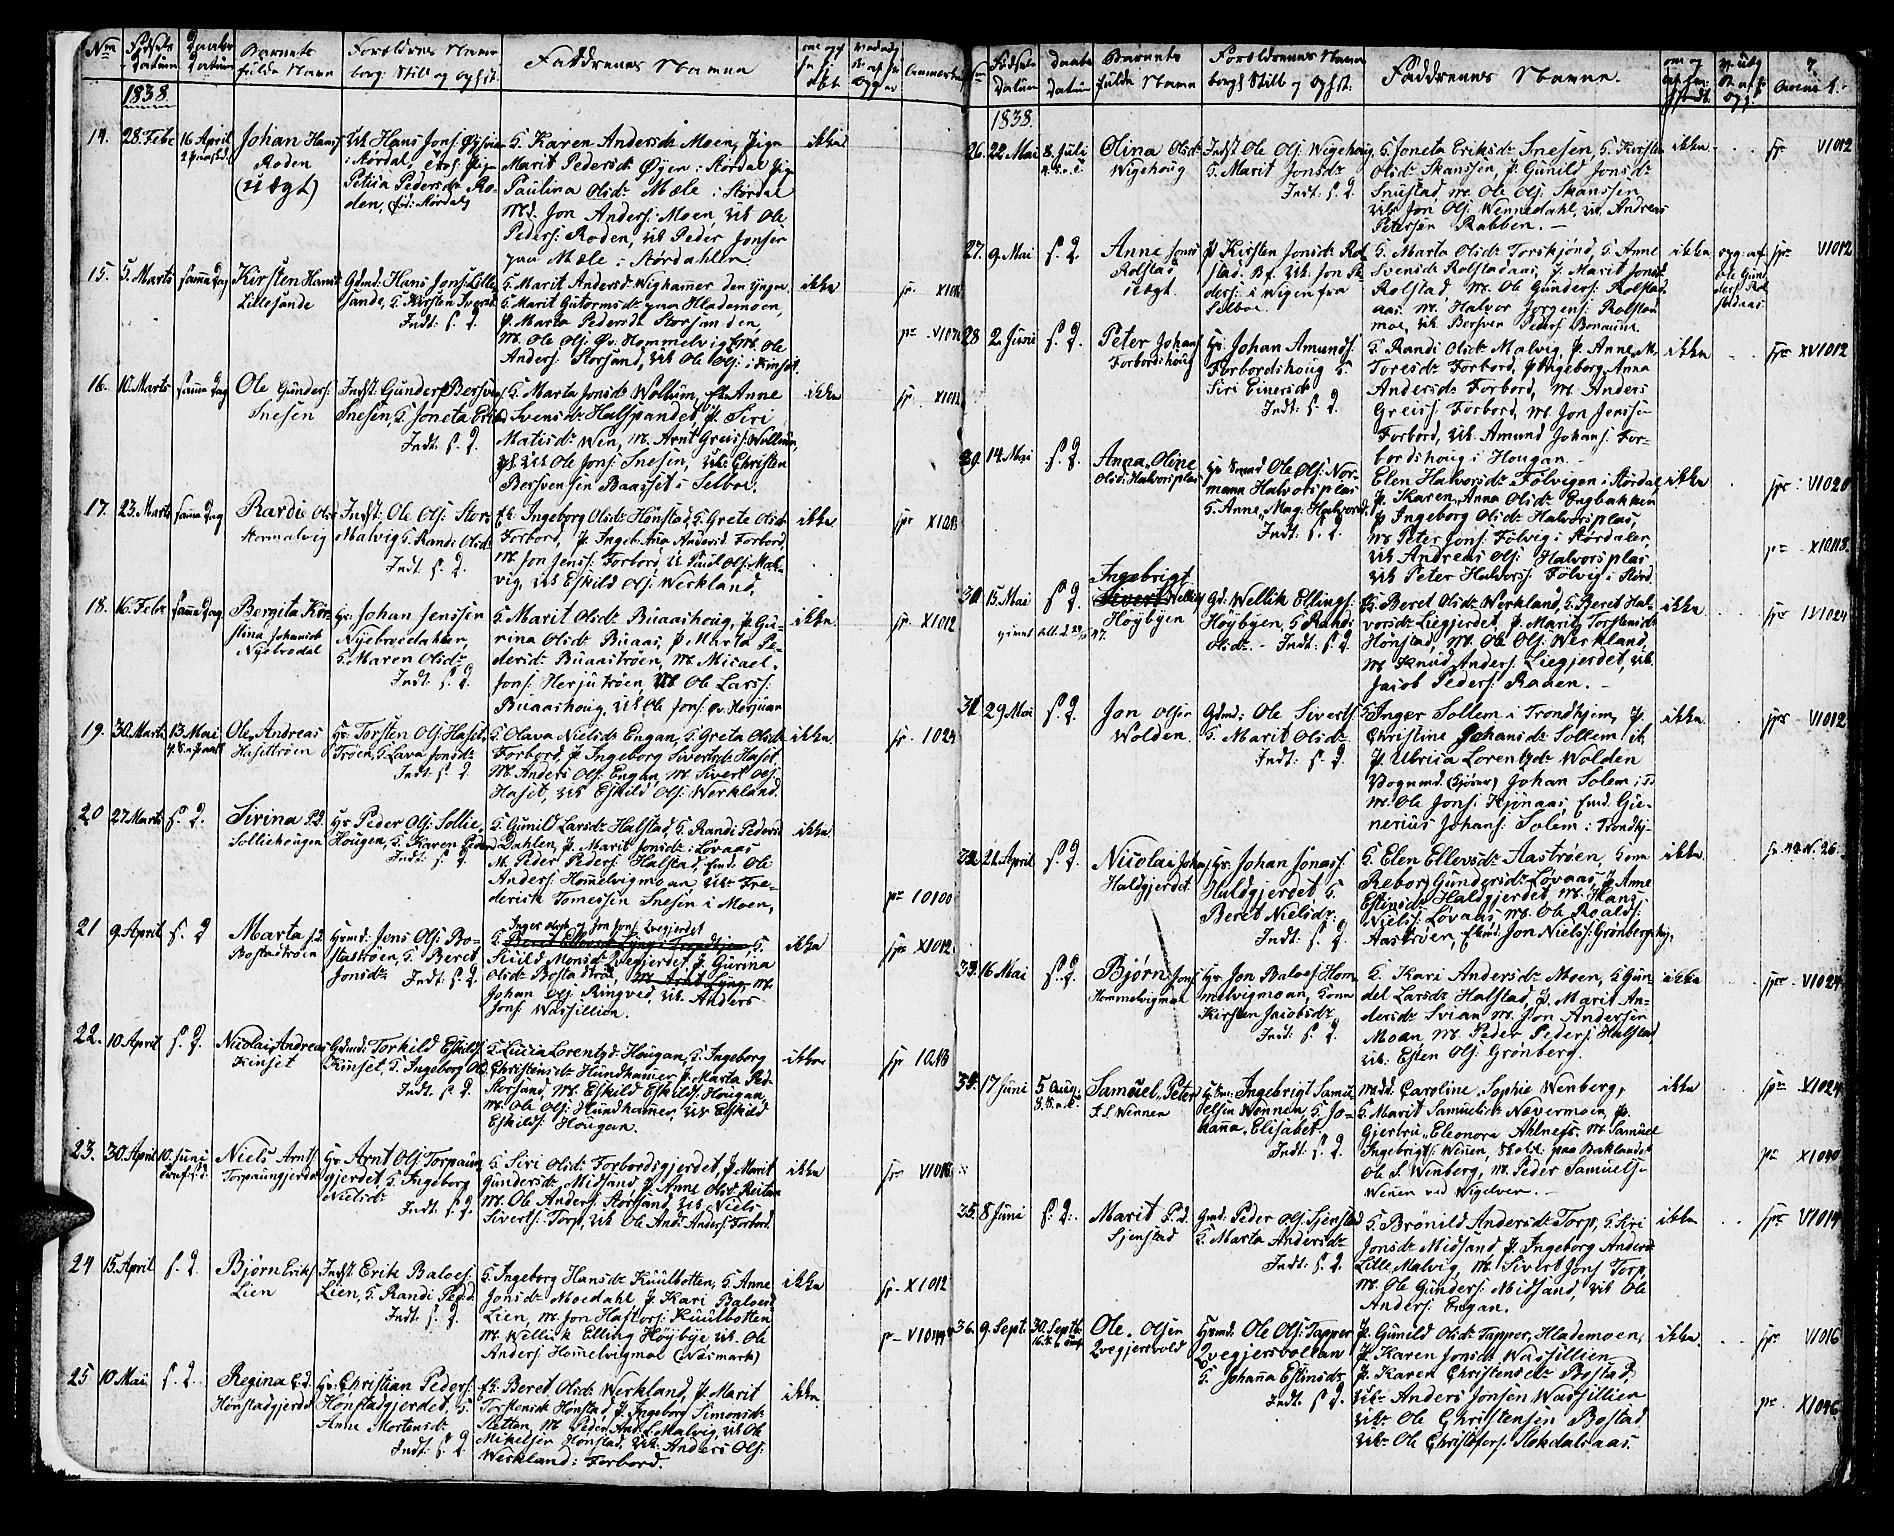 Nm Fødsels Datum Daabs Datum Barnets fulde Navn Forældrenes Navn Faddrenes Navne
1838
14. 28 Febr 16 April Johan Hans Roden (uægt)
2 Paaskd.
Uk Hans Jons. Øyen i Størdal
Petria Pedersdr Roden
G. Karen Andersdr Moen, Pige
Marit Pedersdr Øyen i Størdal Pig
Paulina Olsdr Mæle i Størdal
Md. Jon Anders. Moen, Uk Ole
Peders. Roden, Uk Peder Jonsen
paa Mæle i Størdahlen.
ikke
15. 5. Marts samme Dag Kirsten Hansd Lillesande
Gdmd. Hans Jons. Lille
sande, G. Kirsten
Indt. s. D.
G. Marit Andersd Wighamer den yngre
G. Marit Gutormsdr paa Hlademoen,
P. Marta Pedersdr Storsanden,
M. Ole Ols. Øv. Hommelvig M. Ole
Anders. Storsand, Uk Ole Ols. i Kinset.
ikke
16. 10. Marts samme Dag Ole Gunders. Snesen
Indst. Gunder Bersvens
Snesen, G. Joneta Eriksd
Indt. s. D.
G. Marta Jonsdr Wollum, Ek Anne
Svensdr Halspandet, P. Siri
Matisdr Wen, M. Arnt Greiss. Wullum,
Uk Ole Jons. Snesen, Uk Christen
Bersvensen Baasset i Selboe.
ikke X1012
17. 23. Marts samme Dag Randi Olsd Stormalvig
Indst. Ole Ols. Stor
Malvig G. Randi Olsdr
Indt. s. D.
Ek. Ingeborg Olsdr Hønstad, G. Grete Olsdr
Forbord, P. Ingeb. Ana Andersd Forbord,
M. Jon Jenss. Forbord, Uk Paul Ols. Malvig,
Uk Eskild Ols. Werkland.
ikke
18. 16. Febr samme Dag Bergita Kirstina Johansdr Nyebrodal
Hr. Johan Jenssen
Nyebrodahlen,
G. Maren Olsdr
Indt. s. D.
G. Marit Olsdr Buaashoug, P. Gurina
Olsdr Buaas, P. Marta Pedersdr
Buaastrøen, M. Misael
Jons. Herjutrøen, Uk Ole Larss.
Buaashoug, Uk Ole Jons. Øv. Herjuan
ikke X1012
19. 30. Marts 13. Mai Ole Andreas Hasettrøen
4. S. e. Paask
Hr. Torsten Ols. Haset
Trøen, G. Lava Jonsdr
Indt. s. D.
G. Olava Nielsdr Engan, G. Greta Olsdr
Forbord, P. Ingeborg Sivertsdr Haset
M. Anders Ols. Engan, M. Sivert Ols.
Haset, Uk Eskild Ols. Werkland.
ikke 1024
20 27 Marts s. D. Sirina P.D. Solliehougen
Hr Peder Ols. Sollie
Hougen, G. Karen Pedersd
Indt. s. D.
G. Gunild Larsdr Halstad, G. Randi Pedersd
Dahlen, P. Marit Jonsdr Løvaas
M. Peder Peders. Halstad, Emd. Ole
Anders. Hommelvigmoan, Uk Frederick
Tomessen Snesen i Moen,
ikke 10100
21 9. April s. D Marta J.D. Bostadtrøen
Husmd. Jens Ols. Bostatrøen,
G. Beret
Jonsdr Indt. s. D.
Inger og Jon Jons. Qvegjerdet
Monsdr Qvegjerdet, P. Gurina
Olsdr Bostadtrøe, M. Arnt Lyng M.
Johan Ols. Ringved, Uk. Anders
Jons. Wassillien.
ikke X1012
22. 10 April s. D. Nicolai Andreas Kinset
Gdmd. Torkild Eskilds.
Kinset, G. Ingeborg Ols
Indt. s. D.
G. Lucia Lorentzdr Hougan, G. Ingeborg
Christensdr Hundhamer P. Marta Ped.
Storsand, M. Eskild Eskilds. Hougan,
M. Ole Ols. Hundhamer, Uk Eskild
Eskilds. Hougan.
ikke
23. 30. April 10. Juni Niels Arnts. Torpaungjerdet
Hr Arnt Ols. Torpaun
gjerdet, G. Ingeborg
Nielsdr Indt. s. D.
G. Siri Olsdr Forbordsgjerdet, P. Marit
Gundersdr Midsand, P. Anne Olsdr Reitan
M. Ole Anders. Storsand, Uk Niels
Siverts. Torp, Uk Ole And. Anders. Forbord
ikke
24 15. April s. D. Bjørn Eriks Lien
Indst. Erik Baloes.
Lien, G. Randi Ped.d.
Indt. s. D.
G. Ingeborg Hansdr Kuulbotten, G. Anne
Jonsdr Moedahl P. Kari Baloesd
Lien, M. Jon Haftors. Kuulbotten
M. Wellik Elling Høybye, Uk. Ole
Anders. Hommelvigmoe (Næsmark)
ikke X1012
25 10 Mai s. D. Regina C.d. Hønstadgjerdet
Hr. Christian Peders.
Hønstadgjerdet, G.
Anne Mortensdr
Indt. s. D
Ek. Beret Olsdr Werkland, P. Marit
Torstensdr Hønstad, P. Ingeborg Simonsdr
Sletten, M. Peder And. L. Malvig, Uk Ole
Mikelsen Hønstad, Uk. Anders Ols.
Werkland i Forbord.
ikke
Fødsels Datum Daabs Datum Barnets fulde Navn Forældrenes Navn Faddrenes Navne.
1838.
26. 22. Mai 8. Juli Olina Olsdr Wigehoug
Indst Ole Ols. Wigehoug
G. Marit Jonsdr
Indt. s. D.
G. Joneta Eriksdr Snesen, G. Kirsten
Olsdr Skanssen, P. Gunild Jonsdr
Snustad, M. Ole Ols. Skanssen,
Uk Jon Ols. Wennedahl, Uk. Andreas
Petersen Rabben.
ikke V1012
27. 9. Mai s. D Anne Jonsd Rolstad uægt.
P Kirsten Jonsdr Rolstad.
B.f. Uk. Jon Peders.
i Wigen fra
Selboe.
G. Marta Olsdr Torskjønd, G. Anne
Svensdr Rolstadaas, P. Marit Jonsd
Rolstad, M. Ole Gunders. Rolstad
aas, M. Halvor Jørgens. Rolstad
moe, Uk Bersven Peders.
ikke V1012
28 2. Juni s. D. Peter Johans Forbordshoug
Hr. Johan Amunds.
Forbordshoug G.
Siri Einersdr
Indt. s. D.
G. Randi Olsdr Malvig, P. Anne M.
Toresdr Forbord, P. Ingeborg Anna
Andersdr Forbord, M. Anders
Greiss. Forbord, M. Jon Jenss.
Forbord, Uk. Amund Johans. Forbordshoug
i Hougan.
ikke XV1012
29. 14. Mai s. D. Anna Oline Olsd. Halvorsplas
Ole Ols. Normann
Halvorsplas
G. Anne Mag. Halvorsd.
Indt. s. D.
Elen Halvorsdr Fölvigen i Størdal,
P. Karen Anna Olsdr Engbakken
P Ingeborg Olsdr Halvorsplas,
M. Peter Jons. Fölvig i Størdalen,
Uk Andreas Ols. Halvorsplas
Uk Peter Halvors. Fölvig i Størd.
ikke V1020
30 15. Mai s. D. Ingebrigt Sivert Wellik Høybyen
Gd. Wellik Ellings.
Høybyen, G. Randi
Olsdr Indt. s. D.
G. Beret Olsdr Werkland, G. Beret Halvorsdr
Liegjerdet, P. Marit Torstensdr
Hønstad, M. Ole Ols. Werkland,
M. Knud Anders. Liegjerdet, Uk.
Jacob Peders. Raaen.
ikke
31. 29 Mai s. D. Jon Olsen Wolden
Gdmd: Ole Siverts.
G. Marit Olsdr
Indt. s. D.
G. Inger Sollem i Trondhjem, P
Christine Johansdr Sollem ib.
P. Ulrica Lorentzdr Wolden
Johan Solem i T.
M. Ole Jons. Emd. Guenerius
Johans. Solem i Trondhj.
ikke V1012
32. 21. April s. D. Nicolai Johans Haldgjerdet
Hr. Johan Jonass.
Haldgjerdet, G.
Beret Nielsdr
Indt. s. D.
G. Elen Ellevsdr Aastrøen, Gone
Rebor Gundersdr Løvaas P. Anne
Estinsdr Haldgjerdet, M. Hans
Niels. Løvaas, M. Ole Roalds.
Aastrøen, Jon Niels. Grønberg
ikke
33. 16 Mai s. D. Bjørn Jons Hommelvigmoe
Hr. Jon Baloes. Hommelvigmoan,
Gone
Kirsten Jacobsdr
Indt. s. D.
G. Kari Andersdr Moen, G. Gundel
Larsdr Halstad, P. Marit Andersdr
Svian M. Jon Andersen
Moan M. Peder Peders. Halstad
Uk. Esten Ols. Grønberg.
ikke V1024
34. 17 Juni 5 Aug. Samuel Peter I.S. Wennen
Ingebrigt Samuelsen
Wennen, G. Johanna
Elisabet
Indt. s. D.
Mdd. Caroline Sophie Wenberg,
G. Marit Samuelsdr Nævermoen, P.
Gjertru Eleonora Ahlness. M. Samuel
Ingebrigts. Wenen, paa Baklandet
Ole S. Wenberg, M. Peder Samuels.
Wenen ved Wigelven.
ikke X1024
35. 8 Juni s. D. Marit P.d. Sjenstad
Gmd. Peder Ols. Sjenstad
G. Marta Andersdr
Indt. s. D.
G. Brönild Andersdr Torp, G. Siri
Jonsdr Midsand P. Ingeborg Andersd
Lille Malvig M. Sivert Jons. Torp,
M. Ole Gunders. Midsand, Uk Ole
Anders. Engan.
ikke V1014
36. 9. Sept. 30. Septb. Ole Olsen Qvegjersvold
Husmd. Ole Ols. Tapper
Qvegjersvollan
G. Johana Estinsdr
Indt. s. D.
P. Gunild Olsdr Tapper, Hlademoen,
P. Karen Jonsdr Wassillien
P. Karen Christensdr Bostad,
Uk. Anders Jonsen Wassillien
Uk. Ole Christensen Bostad
Uk. Ole Christofers. Stokdalsaas.
ikke V1016
X1046